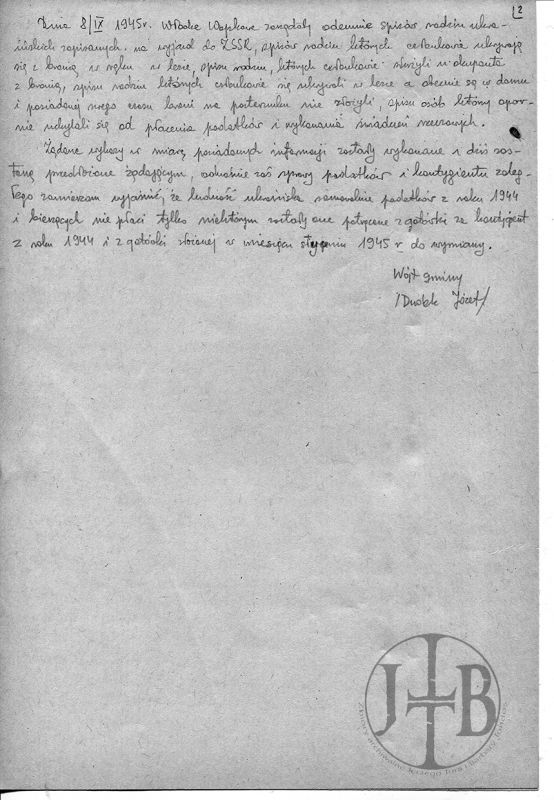 2
Dnia 8/IX 1945r. Władze Wojskowe zarządały odemnie spisów rodzin ukra-
ińskich zapisanych na wyjazd do ZSSR, spisów rodzin których członkowie ukrywają
się z bronią w ręku w lesie, spisu rodzin, których członkowie służyli u okupanta
z bronią, spisu rodzin których członkowie się ukrywali w lesie a obecnie są w domu
i posiadanej swego czasu broni na posterunku nie złożyli, spisu osób którzy opor-
nie uchylali się od płacenia podatków i wykonania świadczeń rzeczowych.
Żądane wykazy w miarę posiadanych informacji zostały wykonane i dziś zos-
taną przedłożone żądającym, odnośnie zaś sprawy podatków i kontygientu zaleg-
łego zamierzam wyjaśnić, że ludność ukraińska samorzutnie podatków z roku 1944
i bieżących nie płaci tylko niektórym zostały one potrącone z gotówki za kontygent
z roku 1944 i z gotówki złożonej w miesiącu styczniu 1945 r do wymiany.
Wójt gminy
/Dudek Józef/
JTB
Zbiory archiwalne Jerzego Tura i Barbary Tondos